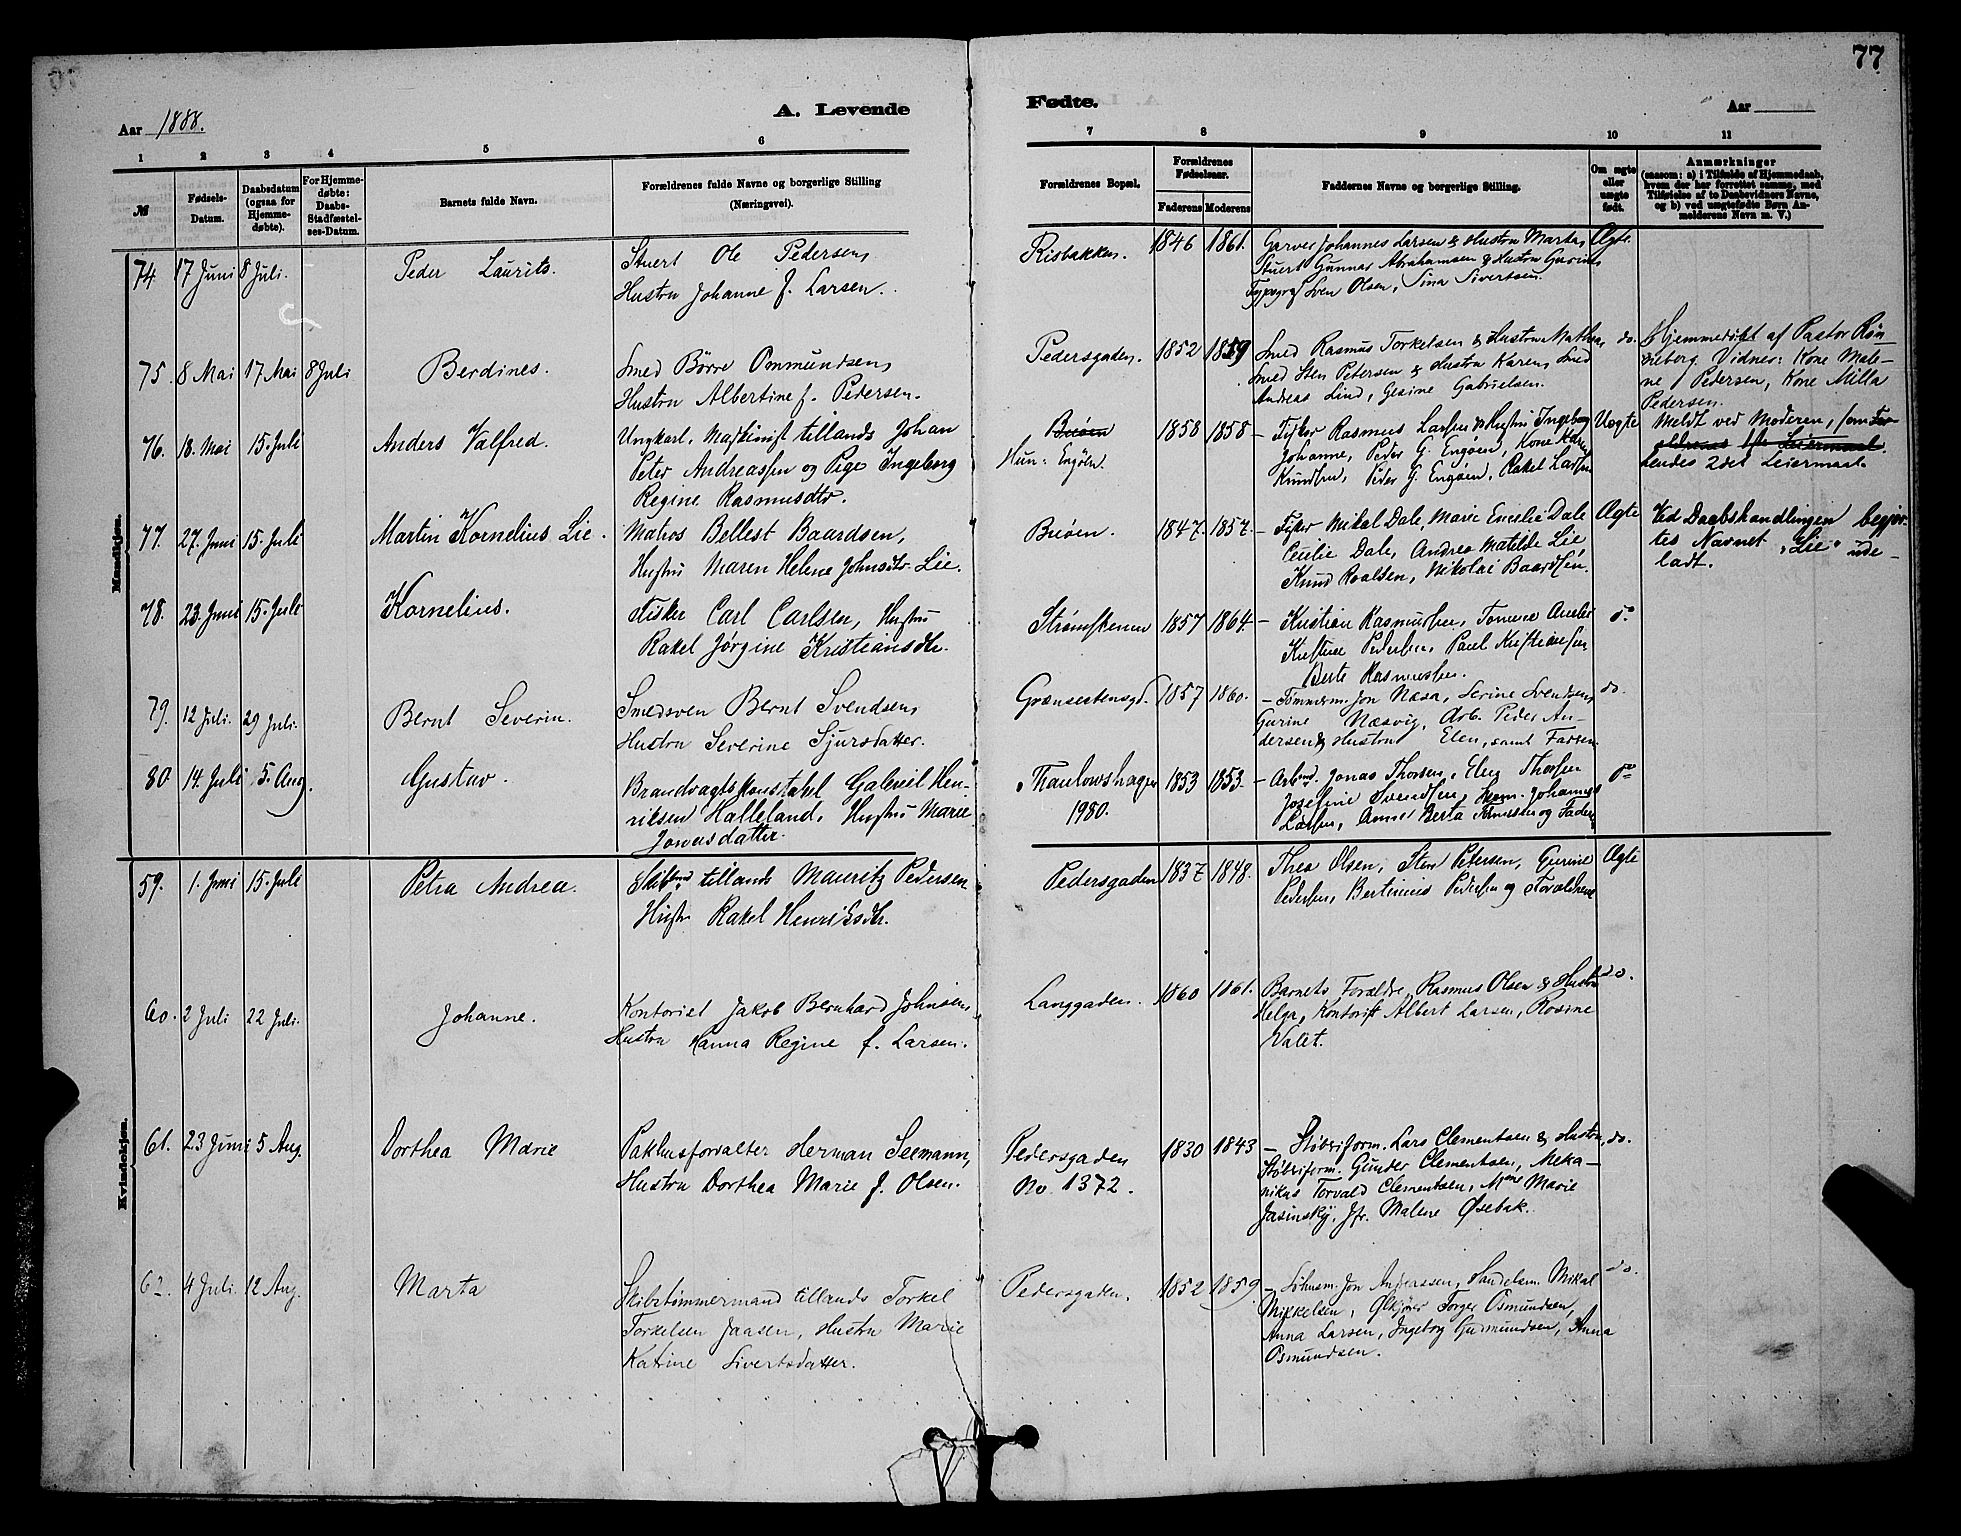 77
Aar 1888.
A. Levende
Fødte.
Aar
1 2 3 4 5 6
7 8 9 10 11
№
Fødsels-Datum.
Daabsdatum (ogsaa for Hjemmedøbte).
For Hjemmedøbte: Daabs-Stadfæstelses-Datum.
Barnets fulde Navn.
Forældrenes fulde Navne og borgerlige Stilling
(Næringsvei).
Forældrenes Bopæl.
Forældrenes Fødselsaar.
Faderens Moderens
Faddernes Navne og borgerlige Stilling.
Om ægte eller uægte født.
Anmærkninger
(saasom: a) i Tilfælde af Hjemmedaab, hvem der har forrettet samme, med Tilføielse af to Daabsvidners Navne, og b) ved uægtefødte Børn Anmelderens Navn m. V.)
Mandkjøn.
74 17 Juni 8 Juli. Peder Laurits. Stuert Ole Pedersen,
Hustru Johanne f. Larsen.
Risbakken. 1846 1861. Garver Johannes Larsen & Hustru Marta, Ægte.
Stuert Gunnar Abrahamsen & Hustru Gurine,
Typograf Sven Olsen, Sina Sivertsen.
75. 8 Mai 17 Mai 8 Juli Berdines. Smed Börre Ommundsen,
Hustru Albertine f. Pedersen.
Pedersgaden. 1852 1859 Smed Rasmus Torkelsen & Hustru Mathea, do.
Smed Sten Petersen & Hustru Karen, Smed
Andreas Lind, Gesine Gabrielsen.
Hjemmedöbt af Pastor Rön-
neberg. Vidner: Kone Male-
ne Pedersen, Kone Milla
Pedersen.
76. 18. Mai 15. Juli Anders Valfred. Ungkarl, Maskinist tillands Johan
Peter Andreassen og Pige Ingeborg
Regine Rasmusdtr.
Buöen
Hun: Engöen.
1858 1858 – Fisker Rasmus Larsen & Hustru Ingeborg Uægte
Johanne, Peder G. Engöen, Kone Karen
Knudsen, Peder G. Engöen, Rakel Larsen
Meldt ved Moderen,
Leiermaal.
hendes 2det Leiermaal.
77. 27. Juni 15. Juli Martin Kornelius Lie. Matros Bellest Baardsen,
Hustru Maren Helene Johnsdtr. Lie.
Buöen. 1847. 1857. – Fisker Mikal Dale, Marie Cecilie Dale Ægte
Cecilie Dale, Andrea Matilde Lie
Knud Roalsen, Nikolai Baardsen.
Ved Daabshandlingen begjær-
tes Navnet "Lie" ude-
ladt.
78. 23. Juni 15. Juli Kornelius. Fisker Carl Carlsen, Hustru
Rakel Jørgine Kristiansdtr.
Strömstenen 1857 1864. – Kristian Rasmussen, Tomine Amalie do
Kristine Pedersen, Paul Kristiansen
Berte Rasmussen.
79. 12 Juli. 29 Juli. Bernt Severin. Smedsven Bernt Svendsen,
Hustru Severine Sjursdatter.
Grænsestensgd. 1857 1860. – Tömmerm. Jon Næsa, Serine Svendsen, do.
Gurine Næsvig, Arb. Peder An-
dersen & Hustru Elen, samt Faren
80. 14. Juli 5. Aug. Gustav. Brandvagtskonstabel Gabriel Hen-
riksen Halleland, Hustru Marie
Jonasdatter.
Thaulowshagen
1980.
1853 1853. – Arbmd. Jonas Thorsen, Elen Thorsen do
Josefine Svendsen, Johannes
Larsen, Anne Berta og Fader
Kvindekjøn.
59. 1. Juni 15. Juli Petra Andrea. Skibtmd tillands Mauritz Pedersen
Hustru Rakel Henriksdtr.
Pedersgaden 1837 1848. Thea Olsen, Sten Petersen, Gurine Ægte
Pedersen, Bertinius Pedersen og Forældrene
60. 2 Juli 22 Juli. Johanne. Kontorist Jakob Bernhard Johnsen,
Hustru Hanna Regine f. Larsen.
Langgaden. 1860 1861. Barnets Forældre, Rasmus Olsen & Hustru do.
Helga, Kontorist Albert Larsen, Rosine
Valet.
61. 23 Juni 5 Aug. Dorthea Marie Pakhusforvalter Herman Seemann,
Hustru Dorthea Marie f. Olsen.
Pedersgaden
No. 1372.
1830 1843 – Stöberiform. Lars Clementsen & Hustru, do.
Stöberiform. Gunder Clementsen, Meka-
nikus Torvald Clementsen, Mme Marie
Jasinsky, Jfr. Malene Øsebak.
62. 4 Juli. 12 Aug. Marta Skibstömmermand tillands Torkel
Torkelsen Jaasen, Hustru Marie
Katrine Sivertsdatter.
Pedersgaden. 1852 1859 – Jon Anderssen, Handelsm. Mikal do.
Mikkelsen, Ølkjörer Torger Osmundsen,
Anna Larsen, Ingeborg Gudmundsen, Anna
Osmundsen.